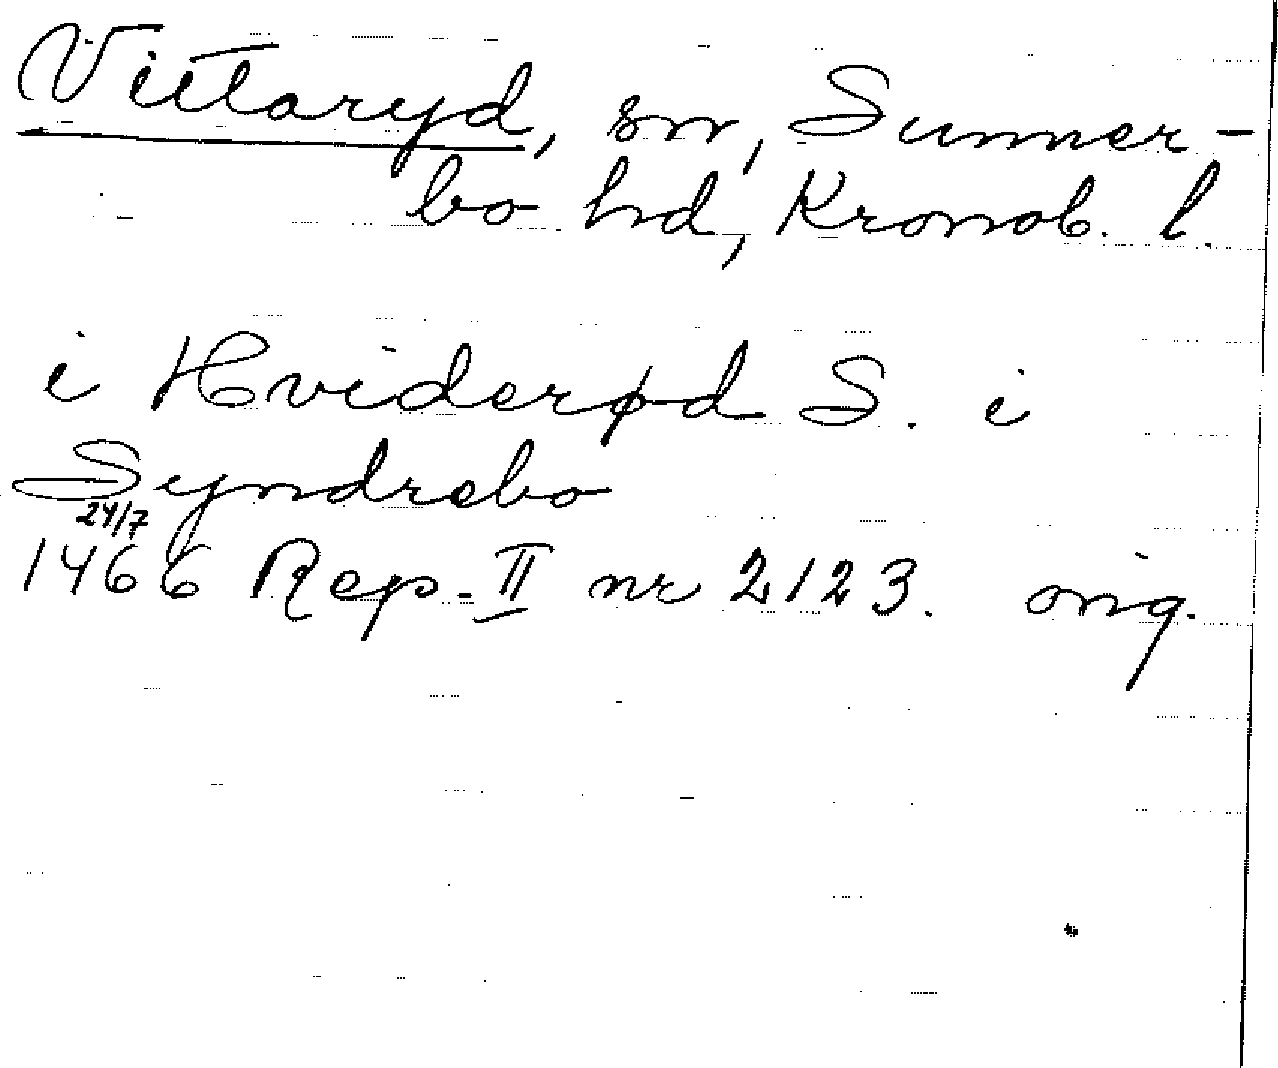 Vittaryd, sn, Sunner-
bo hd, Kronob. l.
i Hviderød S. i
Syndrebo
24/7
1466 Rep. II nr 2123. orig.